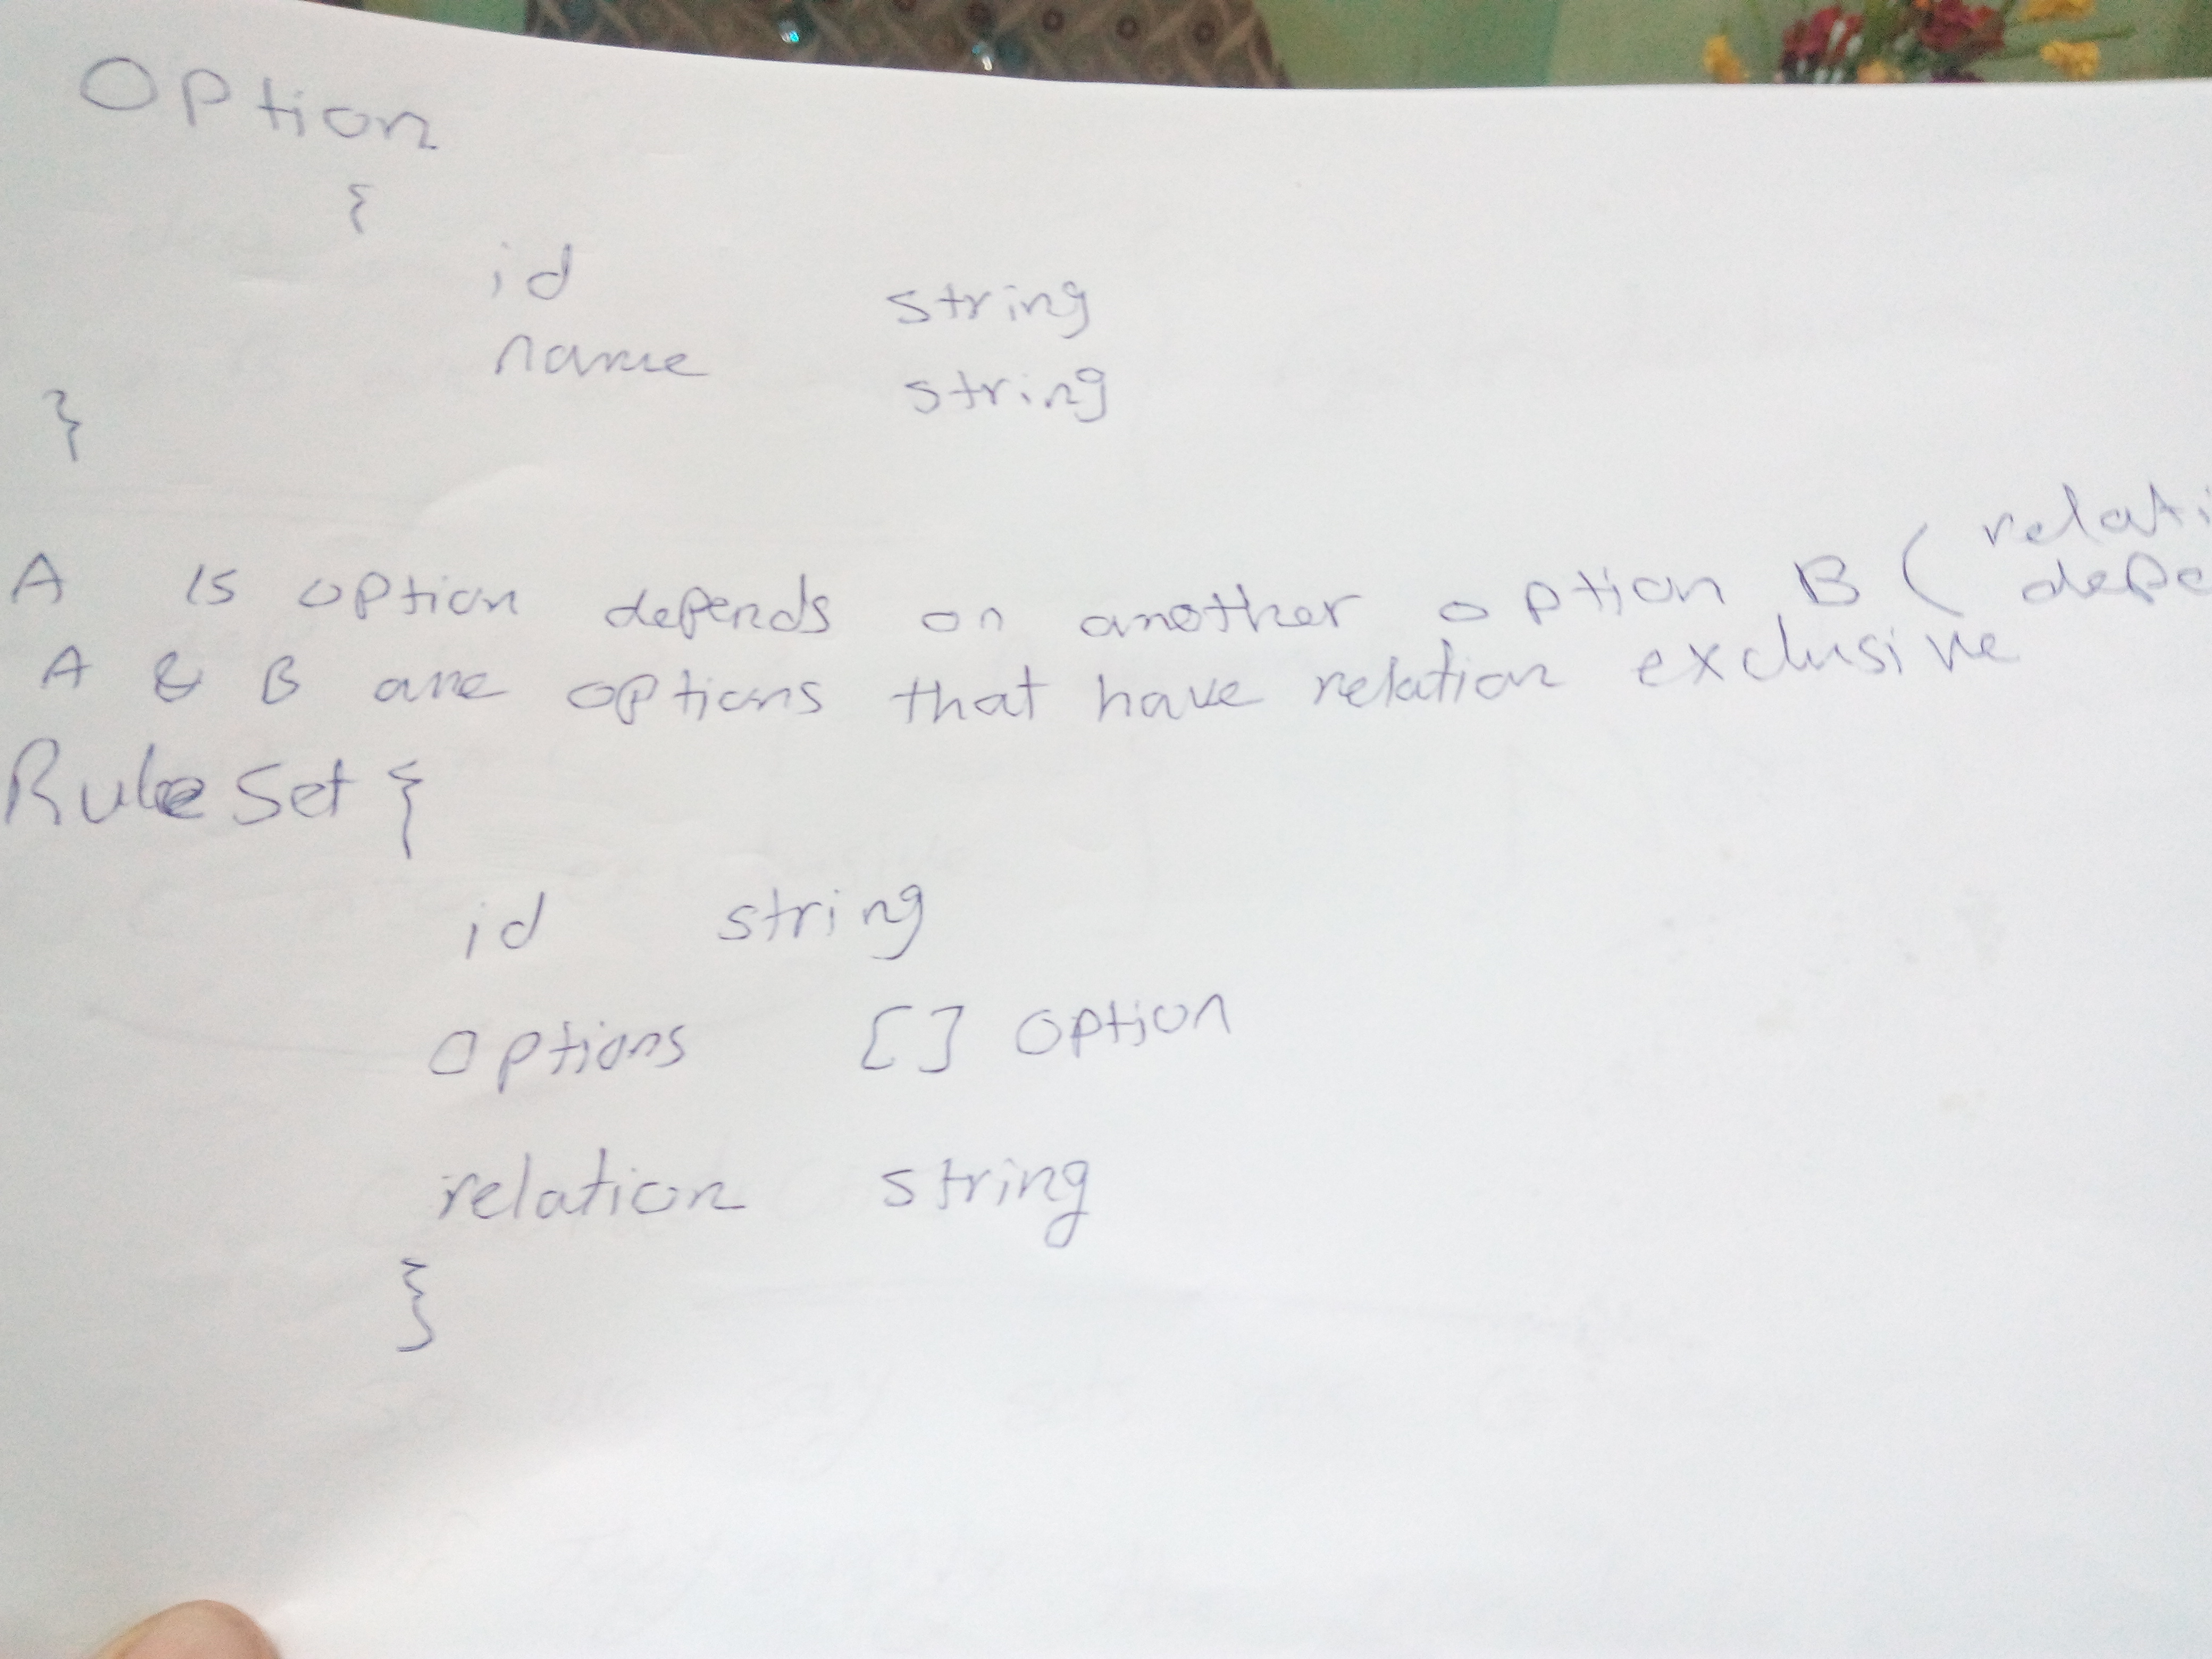 Option
{
id string
name string
}
A is option depends on another option B (
A & B are options that have relation exclusive
Rule Set {
id string
options [] option
relation string
}